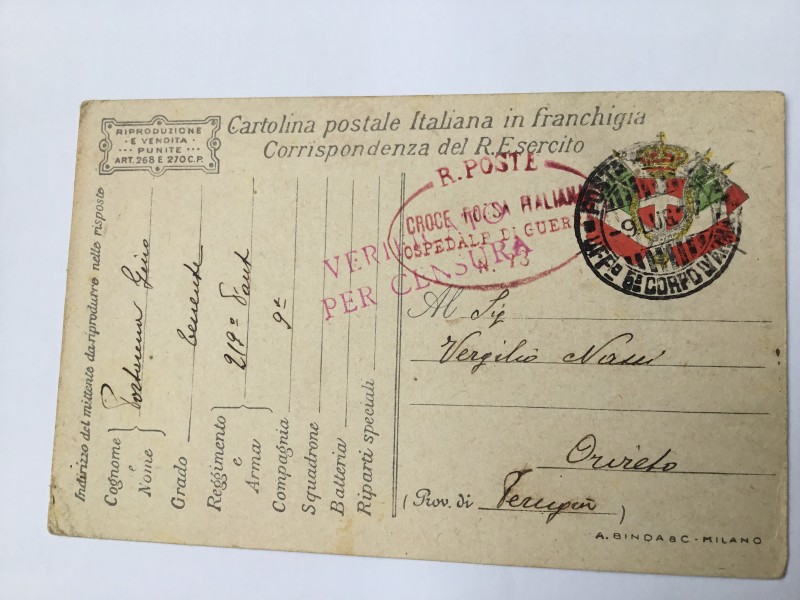 RIPRODUZIONE
E VENDITA
PUNITE
ART. 268 E 270 C.P.
Cartolina postale Italiana in franchigia
Corrispondenza del R. Esercito
R. POSTE
CROCE ROSSA ITALIANA
OSPEDALE DI GUERRA
N. 73
VERIFICATO
PER CENSURA
POSTE
9 LUG
UFF° 6° CORPO D'
Indirizzo del mittente da riprodurre nelle risposte
Cognome e Nome Gino
Grado tenente
Reggimento e Arma 219° Fant
Compagnia 9a
Squadrone
Batteria
Riparti speciali
Al Sig
Vergilio
Orvieto
(Prov. di Perugia)
A. BINDA & C - MILANO